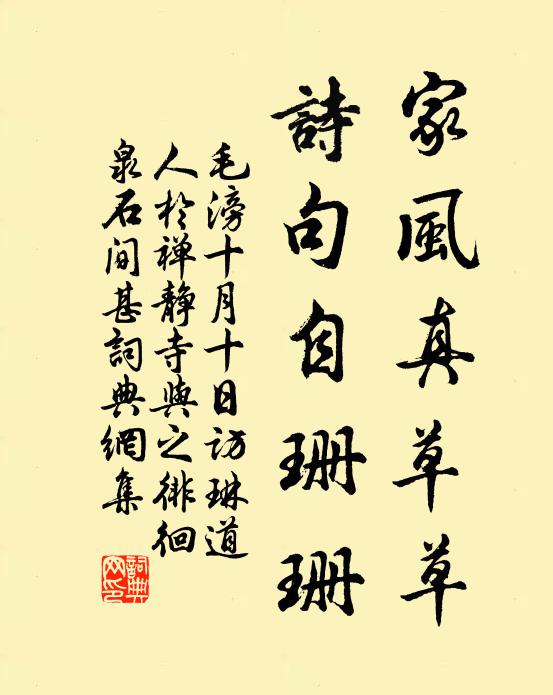 家風真草草
詩句自珊珊
毛滂十月十日訪琳道
人於禅静寺與之徘徊
泉石间甚詞典網集
詞典网印